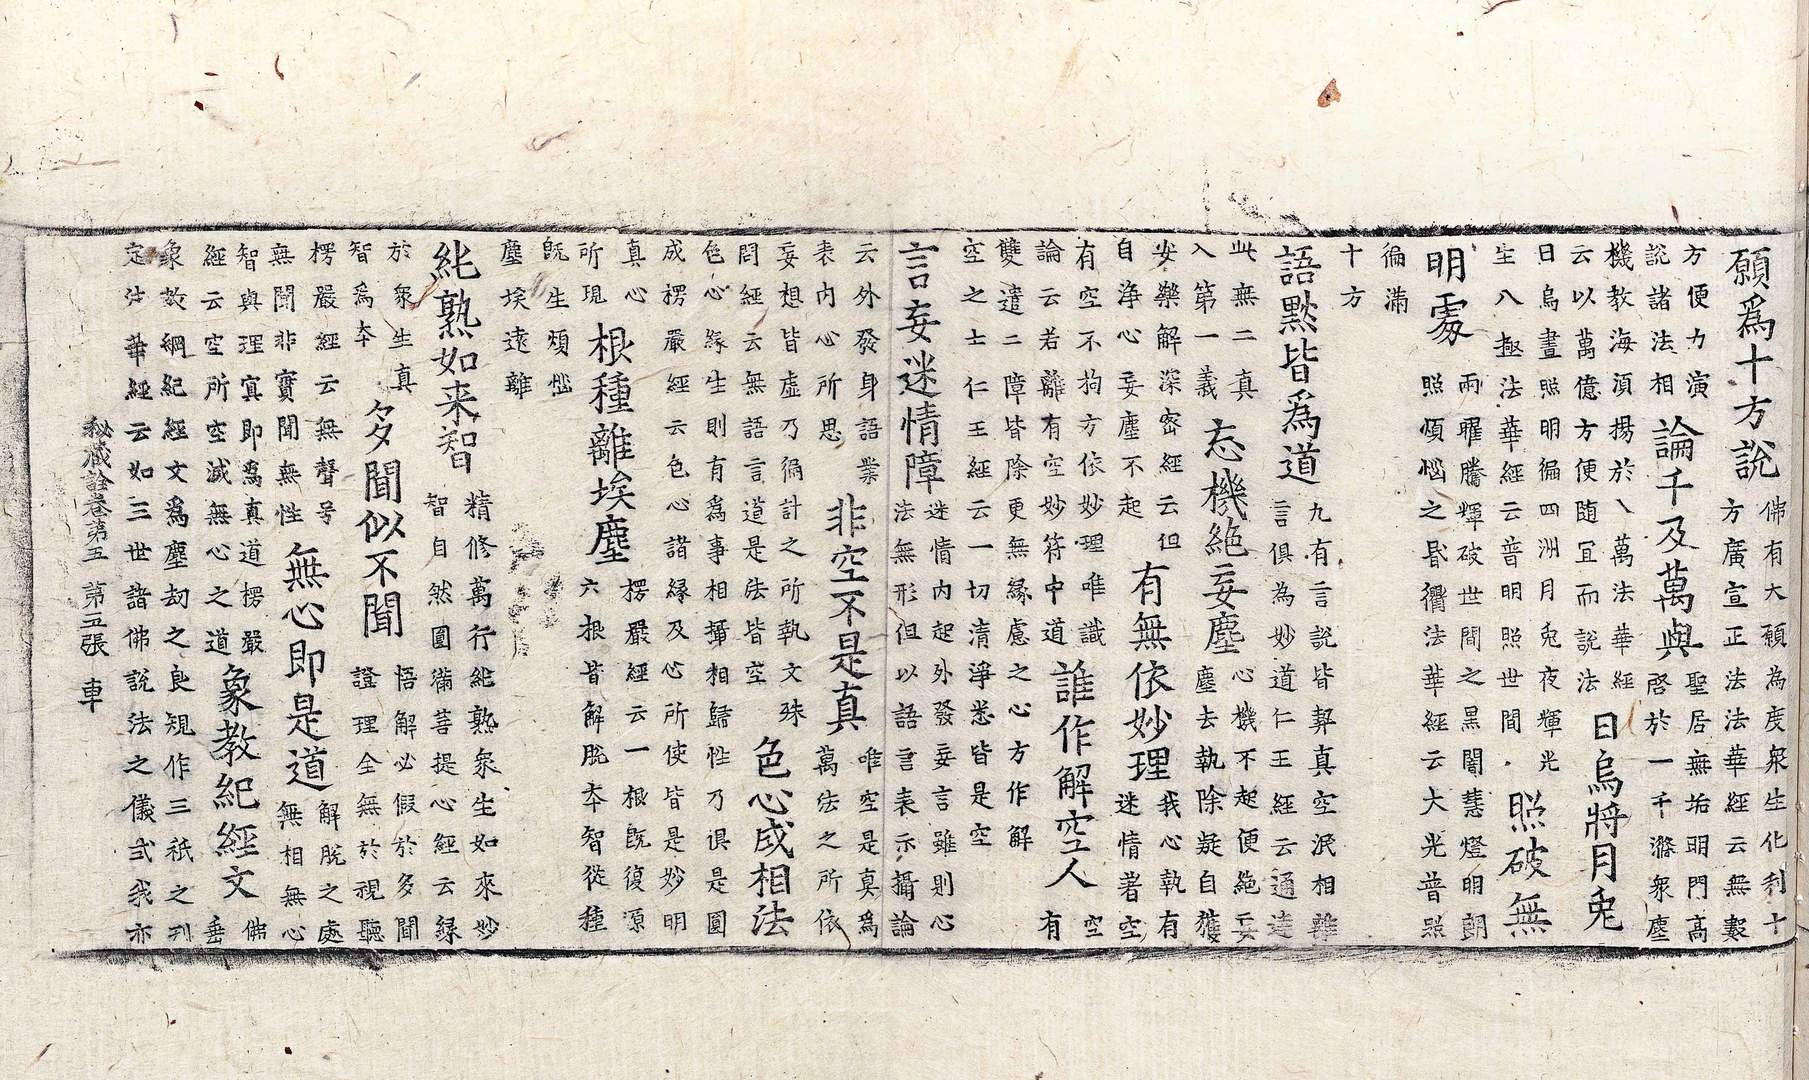 願爲十方說
佛有大願為度衆生化利十
方廣宣正法法華經云無數
方便力演
說諸法相
論千及萬與
聖居無垢明門高
啓於一千滌衆塵
機教海須揚於八萬法華經
云以萬億方便随冝而說法
日烏將月兎
日烏晝照明徧四洲月兎夜輝光
生八極法華經云普明照世間
照破無
明處
兩曜騰輝破世間之黑闇慧燈明朗
照煩惱之昬衢法華經云大光普照
徧滿
十方
語默皆爲道
九有言說皆契真空泯相離
言俱為妙道仁王經云通達
此無二真
入第一義
忘機絶妄塵
心機不起便絶妄
塵去執除疑自獲
安樂解深密經云但
自浄心妄塵不起
有無依妙理
我心執有
迷情著空
有空不拘方依妙理唯識
論云若離有空妙符中道
誰作解空人
空
有
雙遣二障皆除更無縁慮之心方作解
空之士仁王經云一切清淨悉皆是空
言妄迷情障
迷情内起外發妄言雖則心
法無形但以語言表示攝論
云外發身語業
表内心所思
非空不是真
唯空是真爲
萬法之所依
妄想皆虛乃徧計之所執文殊
問經云無語言道是法皆空
色心成相法
色心縁生則有爲事相攝相歸性乃俱是圓
成楞嚴經云色心諸縁及心所使皆是妙明
真心
所現
根種離埃塵
楞嚴經云一根旣復源
六根皆解脱本智從種
旣生煩惱
塵埃遠離
純熟如来智
精修萬行純熟衆生如來妙
智自然圓滿菩提心經云縁
於衆生真
智爲本
多聞似不聞
悟解必假於多聞
證理全無於視聽
楞嚴經云無聲号
無聞非實聞無性
無心即是道
解脱之處
無相無心
智與理㝠即爲真道楞嚴
經云空所空滅無心之道
象教紀經文
佛
垂
象教綱紀經文爲塵刧之良規作三祇之列
定法華經云如三世諸佛說法之儀式我亦
秘藏詮卷第五 第五張 車